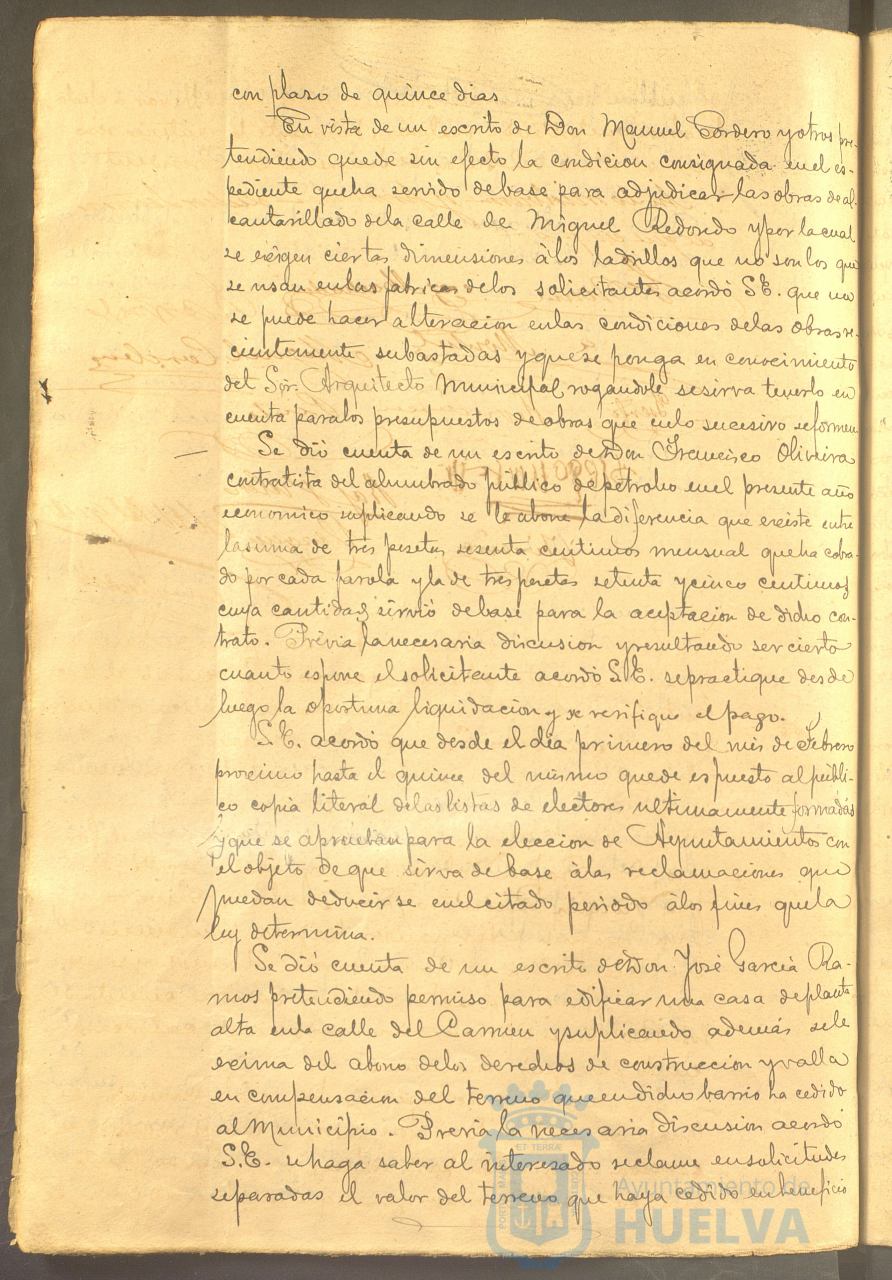 con plazo de quince dias
En vista de un escrito de Don Manuel Cordero y otros pre-
tendiendo quede sin efecto la condicion consignada en el es-
pediente que ha servido de base para adjudicar las obras de al-
cantarillado de la calle de Miguel Redondo y por la cual
se exigen ciertas dimensiones á los ladrillos que no son los que
se usan en las fabricas de los solicitantes acordó S.E. que no
se puede hacer alteracion en las condiciones de las obras re-
cientemente subastadas y que se ponga en conocimiento
del Sor. Arquitecto Municipal rogandole se sirva tenerlo en
cuenta para los presupuestos de obras que en lo sucesivo se formen
Se dió cuenta de un escrito de Don Francisco Oliveira
contratista del alumbrado público de petroleo en el presente año
economico suplicando se le abone la diferencia que existe entre
la suma de tres pesetas sesenta centimos mensual que ha cobra-
do por cada farola y la de tres pesetas setenta y cinco centimos
cuya cantidad sirvió de base para la aceptacion de dicho con-
trato. Prévia la necesaria discusion y resultando ser cierto
cuanto espone el solicitante acordó S.E. se practique desde
luego la oportuna liquidacion y se verifique el pago.
S.E. acordó que desde el dia primero del mes de Febrero
procimo hasta el quince del mismo quede espuesto al públi-
co copia literal de las listas de electores ultimamente formadas
y que se aprueban para la eleccion de Ayuntamientos con
el objeto de que sirva de base á las reclamaciones que
puedan deducirse en el citado periodo á los fines que la
ley determina.
Se dió cuenta de un escrito de Don José Garcia Ra-
mos pretendiendo permiso para edificar una casa de planta
alta en la calle del Carmen y suplicando además se le
exima del abono de los derechos de construccion y valla
en compensacion del terreno que en dicho barrio ha cedido
al Municipio. Previa la necesaria discusion acordó
S.E. se haga saber al interesado reclame en solicitudes
separadas el valor del terreno que haya cedido en beneficio
Ayuntamiento de
HUELVA
ET TERRA